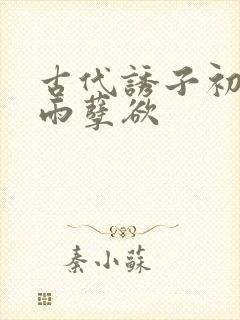 古代誘子初
雨孽欲
秦小蘇